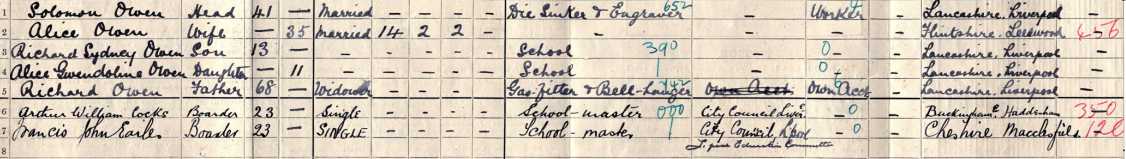 1 Solomon Owen Head 41 — Married — — — — Die Sinker & Engraver 652 Worker — Lancashire, Liverpool —
2 Alice Owen Wife — 35 Married 14 2 2 — — — — — Flintshire. Leeswood 456
3 Richard Sydney Owen Son 13 — — — — — — School 390 — 0 — Lancashire, Liverpool —
4 Alice Gwendoline Owen Daughter — 11 — — — — — School — 0 — Lancashire, Liverpool —
5 Richard Owen Father 68 — Widower — — — — Gas-fitter & Bell-Hanger 742 Own Acct Own Acct — Lancashire, Liverpool —
6 Arthur William Cocks Boarder 23 — Single — — — — School-master 000 City Council — 0 — Haddenham 350
7 Francis John Earles Boarder 23 — SINGLE — — — — School-master City Council L'pool — 0 — Cheshire Macclesfield 120
8 Committee